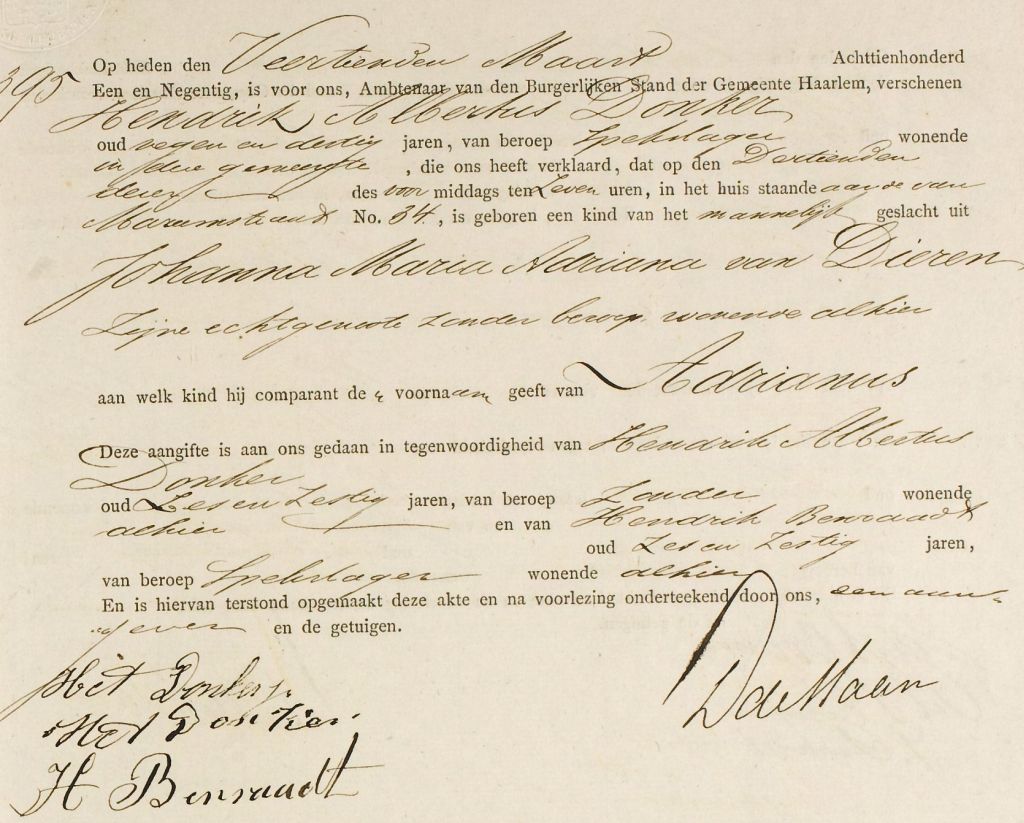 395
Op heden den Veertienden Maart Achttienhonderd
Een en Negentig, is voor ons, Ambtenaar van den Burgerlijken Stand der Gemeente Haarlem, verschenen
Hendrik Albertus Donker
oud negen en dertig jaren, van beroep Spekslager wonende
in deze gemeente, die ons heeft verklaard, dat op den Dertienden
dezer des voor middags ten Zeven uren, in het huis staande aan de van
Marumstraat No. 34, is geboren een kind van het mannelijk geslacht uit
Johanna Maria Adriana van Dieren
Zijne echtgenoote zonder beroep wonende alhier
aan welk kind hij comparant de voornaam geeft van Adrianus
Deze aangifte is aan ons gedaan in tegenwoordigheid van Hendrik Albertus
Donker
oud Zes en Zestig jaren, van beroep Zonder wonende
alhier en van Hendrik Benraadt
oud Zes en Zestig jaren,
van beroep Spekslager wonende alhier
En is hiervan terstond opgemaakt deze akte en na voorlezing onderteekend door ons, den aan-
gever en de getuigen.
HA Donker Jr
HA Donker
D de Haan
H Benraadt